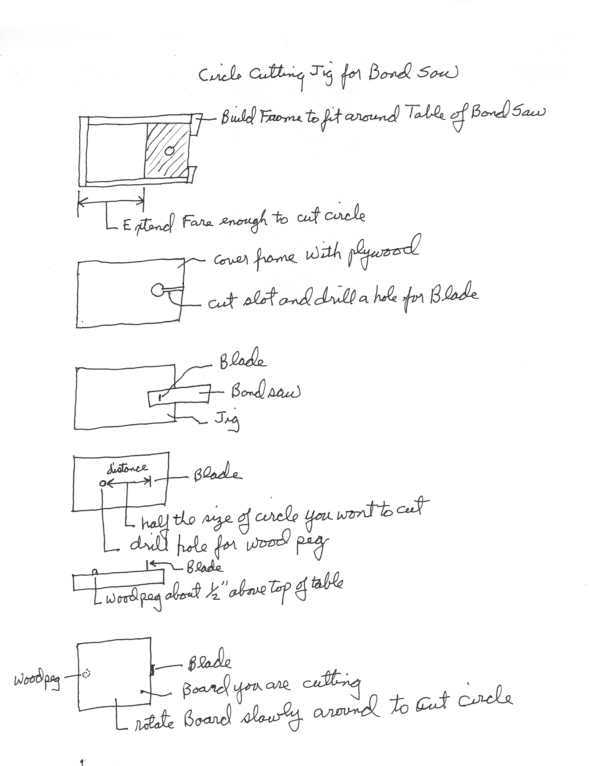 Circle Cutting Jig for Bond Saw
Build Frame to fit around Table of Bond Saw
Extend Fare enough to cut circle
Cover frame with plywood
cut slot and drill a hole for Blade
Blade
Bond saw
Jig
distance
Blade
half the size of circle you wont to cut
drill hole for wood peg
Blade
wood peg about 1/2" above top of table
Blade
wood peg
Board you are cutting
rotate Board slowly around to cut circle